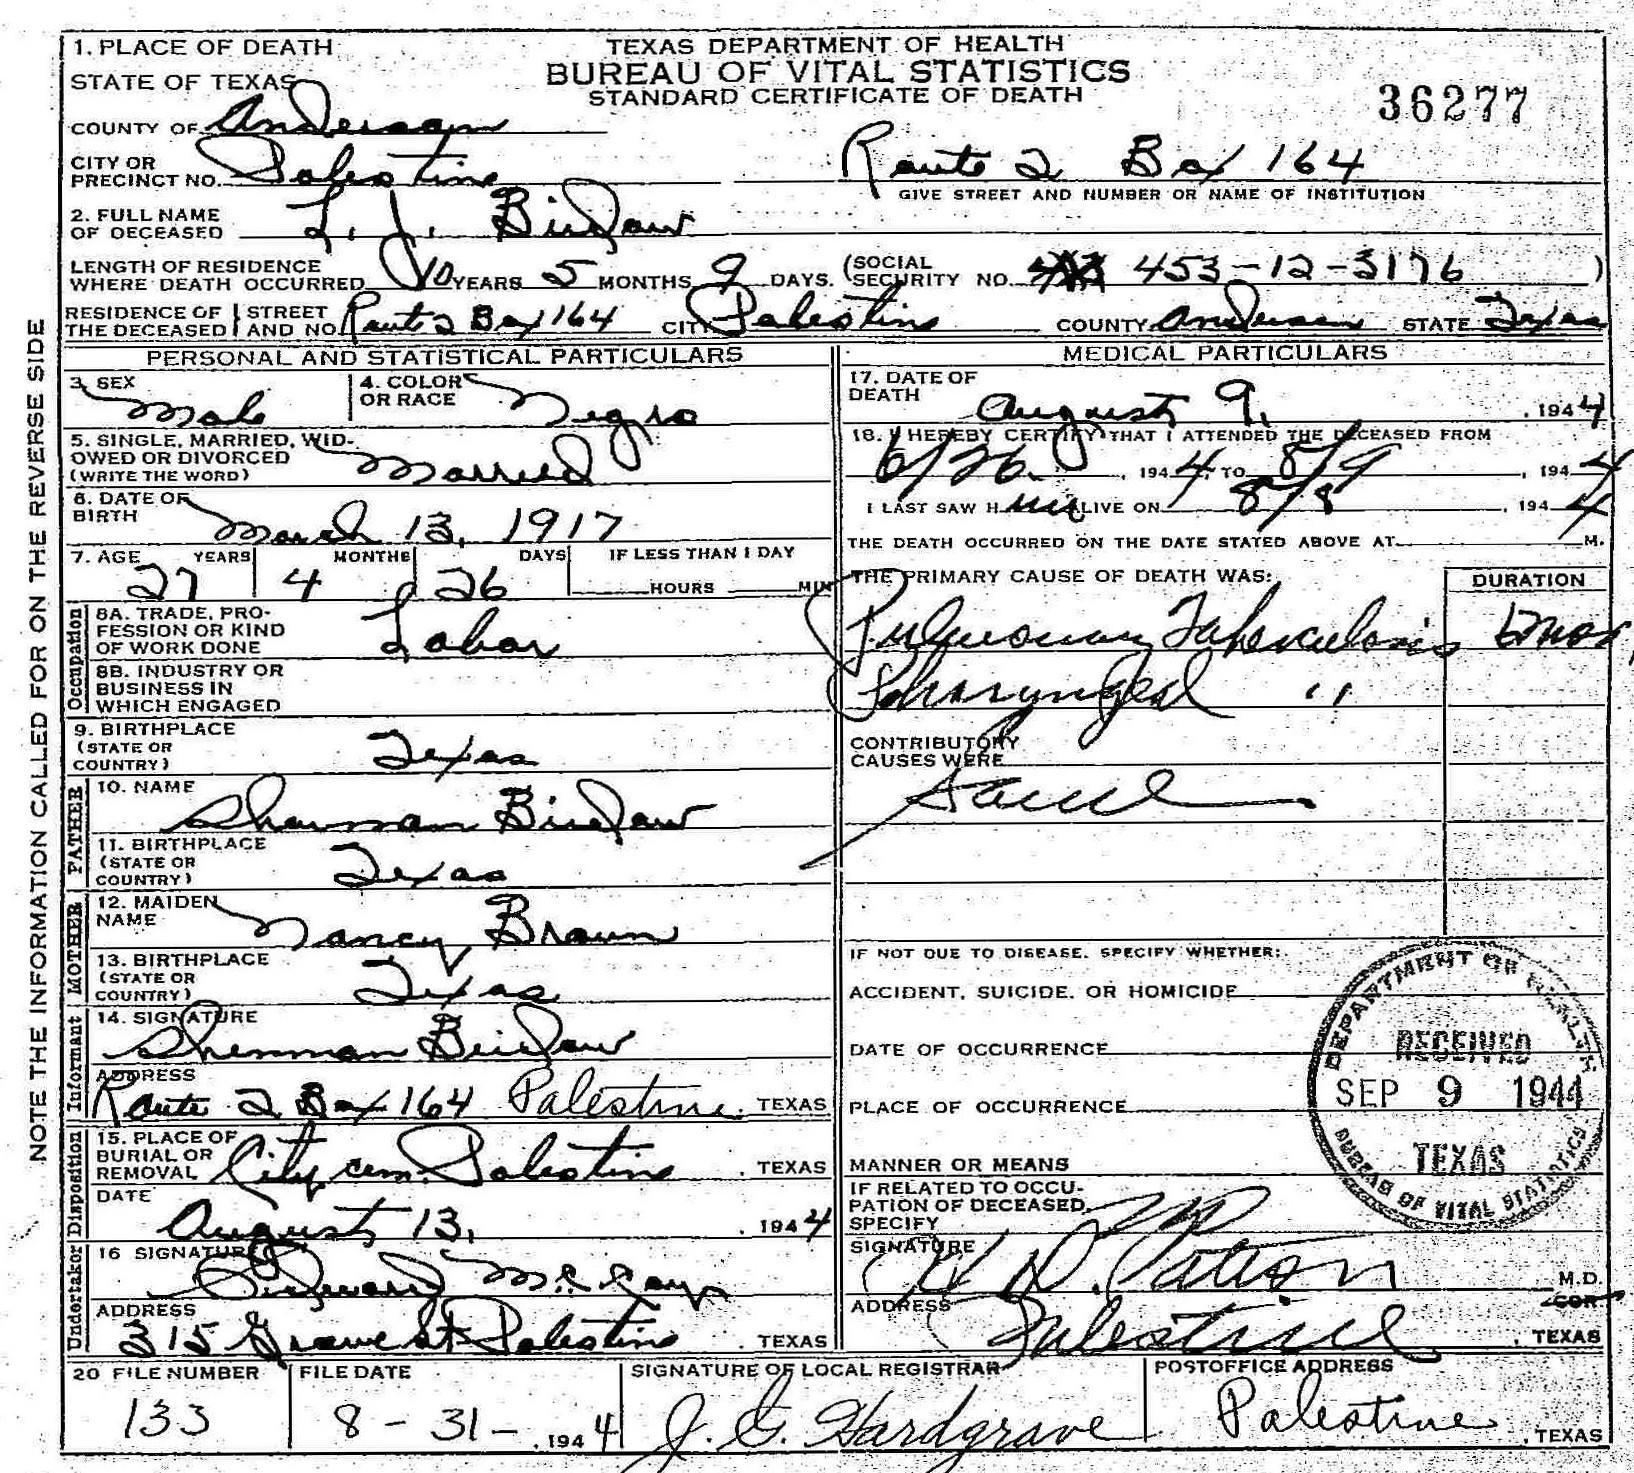 1. PLACE OF DEATH
STATE OF TEXAS
TEXAS DEPARTMENT OF HEALTH
BUREAU OF VITAL STATISTICS
STANDARD CERTIFICATE OF DEATH
36277
COUNTY OF Anderson
CITY OR PRECINCT NO. Palestine Route 2 Box 164
GIVE STREET AND NUMBER OR NAME OF INSTITUTION
2. FULL NAME OF DECEASED L. J.
LENGTH OF RESIDENCE WHERE DEATH OCCURRED 10 YEARS 5 MONTHS 9 DAYS. (SOCIAL SECURITY NO. 453-12-3176 )
RESIDENCE OF THE DECEASED STREET AND NO. Route 2 Box 164 CITY Palestine COUNTY Anderson STATE Texas
NOTE THE INFORMATION CALLED FOR ON THE REVERSE SIDE
PERSONAL AND STATISTICAL PARTICULARS
3. SEX Male
4. COLOR OR RACE Negro
5. SINGLE, MARRIED, WIDOWED OR DIVORCED (WRITE THE WORD) Married
6. DATE OF BIRTH March 13, 1917
7. AGE YEARS MONTHS DAYS IF LESS THAN 1 DAY
27 4 26 HOURS MIN
Occupation
8A. TRADE, PROFESSION OR KIND OF WORK DONE Labor
8B. INDUSTRY OR BUSINESS IN WHICH ENGAGED
9. BIRTHPLACE (STATE OR COUNTRY) Texas
FATHER
10. NAME Sherman
11. BIRTHPLACE (STATE OR COUNTRY) Texas
MOTHER
12. MAIDEN NAME Nancy Brown
13. BIRTHPLACE (STATE OR COUNTRY) Texas
Informant
14. SIGNATURE Sherman
ADDRESS Route 2 Box 164 Palestine. TEXAS
Disposition
15. PLACE OF BURIAL OR REMOVAL City cem. Palestine . TEXAS
DATE August 13, . 1944
Undertaker
16 SIGNATURE
ADDRESS 315 St Palestine . TEXAS
MEDICAL PARTICULARS
17. DATE OF DEATH August 9, . 1944
18. I HEREBY CERTIFY THAT I ATTENDED THE DECEASED FROM
6/26 , 1944, TO 8/9 , 1944
I LAST SAW HIM ALIVE ON 8/8 , 1944
THE DEATH OCCURRED ON THE DATE STATED ABOVE AT M.
THE PRIMARY CAUSE OF DEATH WAS: DURATION
Pulmonary Tuberculosis
Pharyngeal "
CONTRIBUTORY CAUSES WERE
Same
IF NOT DUE TO DISEASE, SPECIFY WHETHER:
ACCIDENT, SUICIDE, OR HOMICIDE
DATE OF OCCURRENCE
PLACE OF OCCURRENCE
MANNER OR MEANS
IF RELATED TO OCCUPATION OF DECEASED, SPECIFY
DEPARTMENT OF HEALTH
RECEIVED
SEP 9 1944
TEXAS
BUREAU OF VITAL STATISTICS
SIGNATURE Patton M.D.
ADDRESS Palestine . TEXAS
20 FILE NUMBER 133
FILE DATE 8-31- , 1944
SIGNATURE OF LOCAL REGISTRAR J. G. Hardgrave
POSTOFFICE ADDRESS Palestine . TEXAS